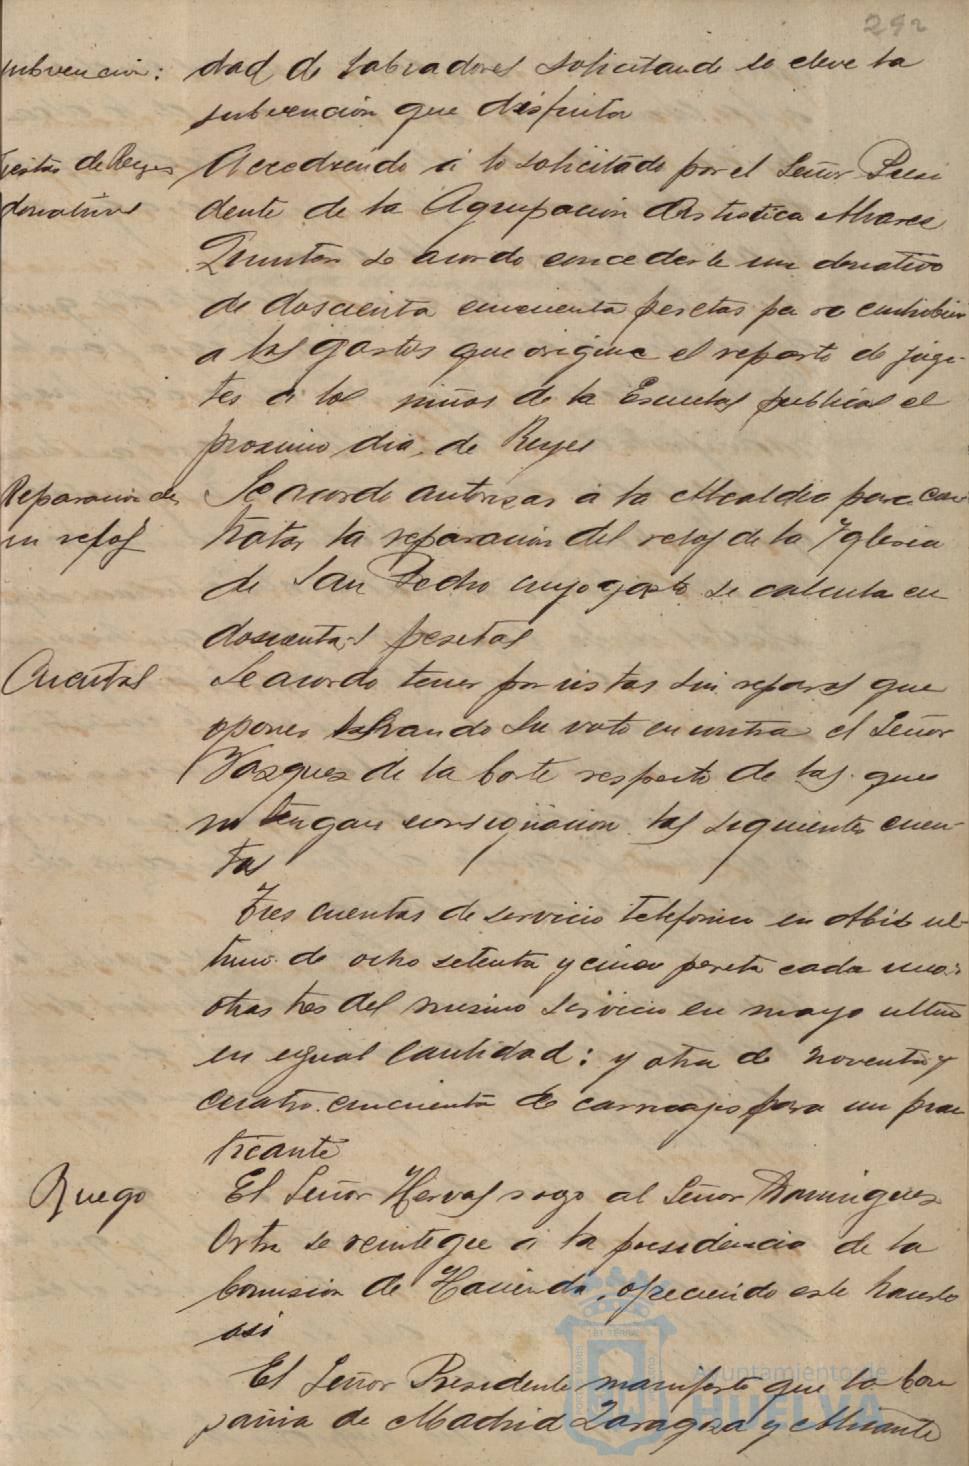 292
subvencion: dad de Labradores solicitando se eleve la
subvención que disfruta
Fiestas de Reyes Accediendo á lo solicitado por el Señor Presi
donativos dente de la Agrupación Artistica Alvarez
Quintero se acordo concederle un donativo
de doscienta cincuenta pesetas para contribuir
a los gastos que origine el reparto de jugue-
tes á los niños de la Escuelas publicas el
proximo dia de Reyes
Reparacion de Se acordo autorizar á la Alcaldia para con
un reloj tratar la reparacion del reloj de la Yglesia
de San Pedro cuyo gasto se calcula en
doscientas pesetas
Cuentas Se acordo tener por vistas sin reparos que
oponer salvando su voto en contra el Señor
Vazquez de la Corte respecto de las que
no tengan consignacion las siguientes cuen-
tas
Tres cuentas de servicio telefonico en Abril ul-
timo de ocho setenta y cinco peseta cada una:
otras tres del mismo servicio en mayo ultimo
en egual cantidad: y otra de noventa y
cuatro cincuenta de carruajes para un prac
ticante
Ruego El Señor Hervas rogo al Señor Dominguez
Orta se reintegre á la presidencia de la
Comision de Hacienda, ofreciendo este hacerlo
asi
El Señor Presidente manifesto que la Com
pañia de Madrid Zaragoza y Alicante
Ayuntamiento de
HUELVA